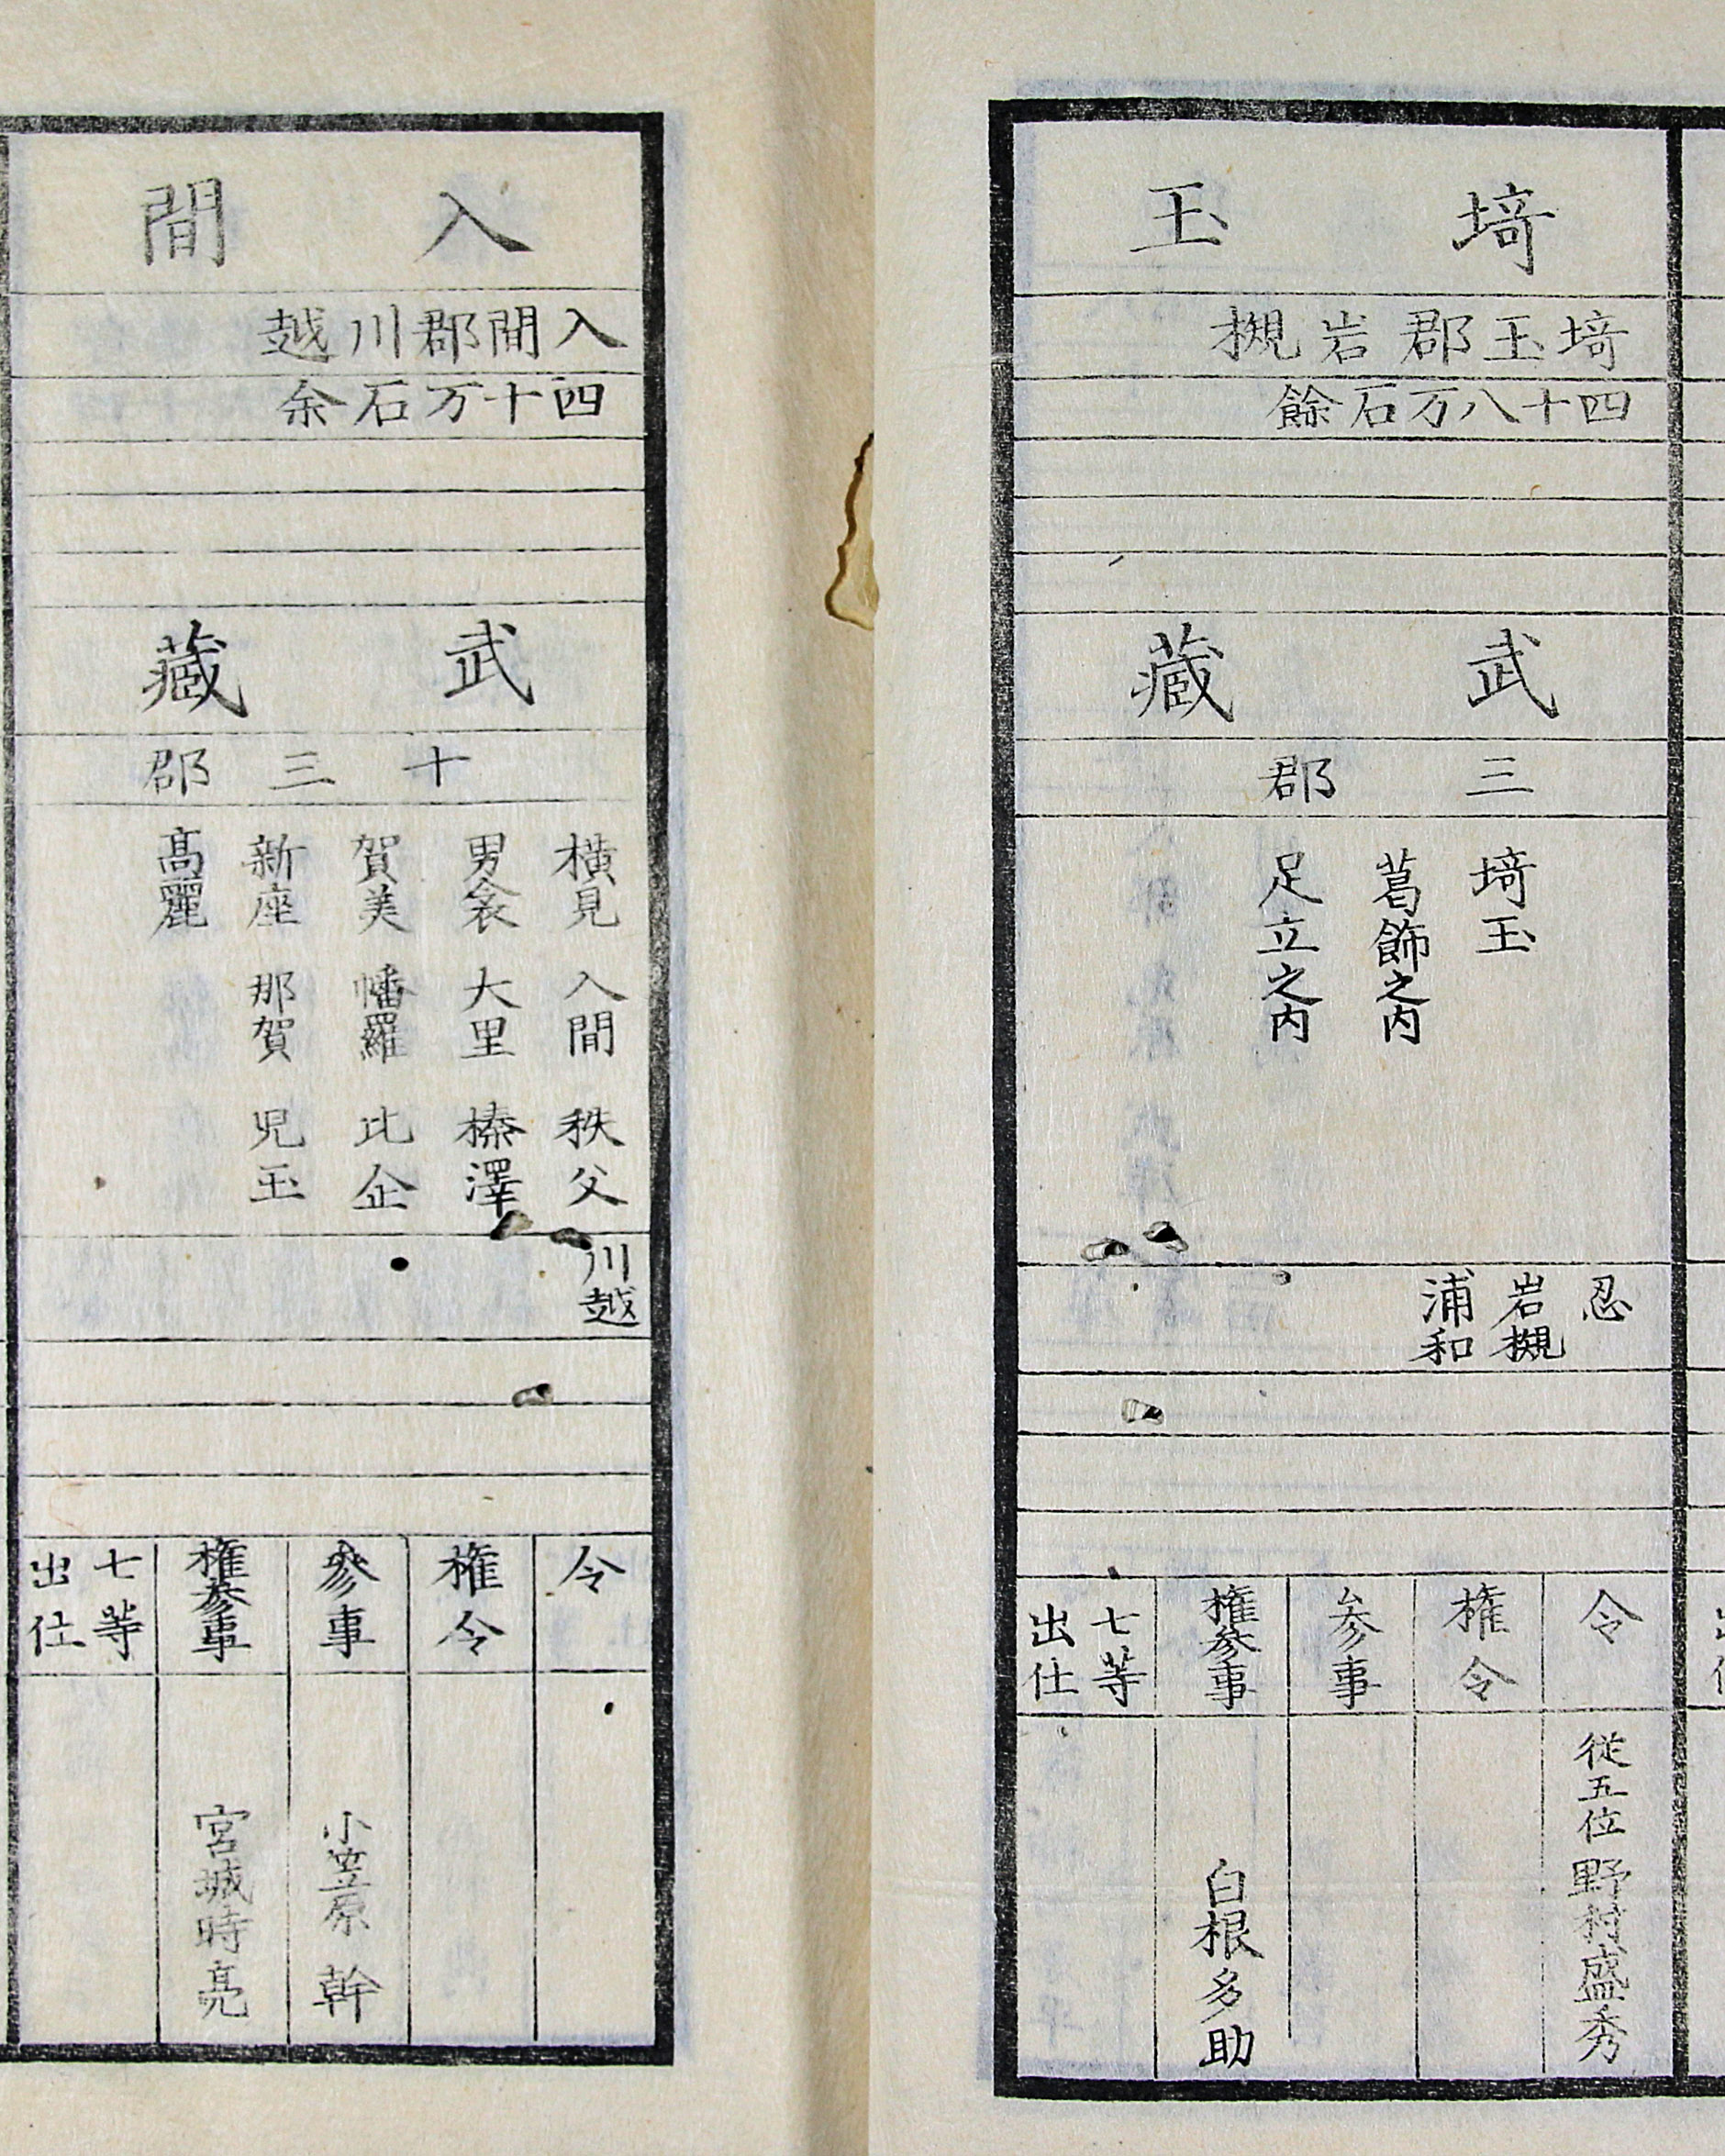 埼玉
埼玉郡岩槻
四十八万石餘
武蔵
三郡
埼玉
葛飾之内
足立之内
忍
岩槻
浦和
令
従五位 野村盛秀
権令
参事
権参事
白根多助
七等
出仕
入間
入間郡川越
四十万石余
武蔵
十三郡
横見 入間 秩父
男衾 大里 榛澤
賀美 幡羅 比企
新座 那賀 児玉
髙麗
川越
令
権令
參事
小笠原 幹
権參事
宮城時亮
七等
出仕